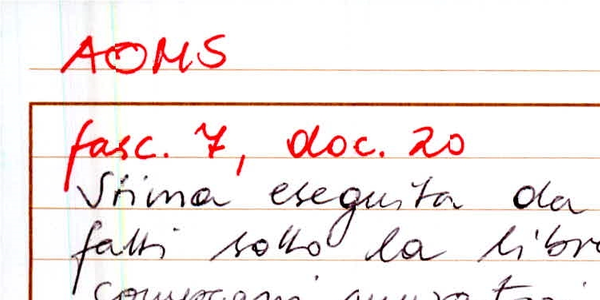 AOMS
fasc. 7, doc. 20
Stima eseguita da
fatti sotto la libr